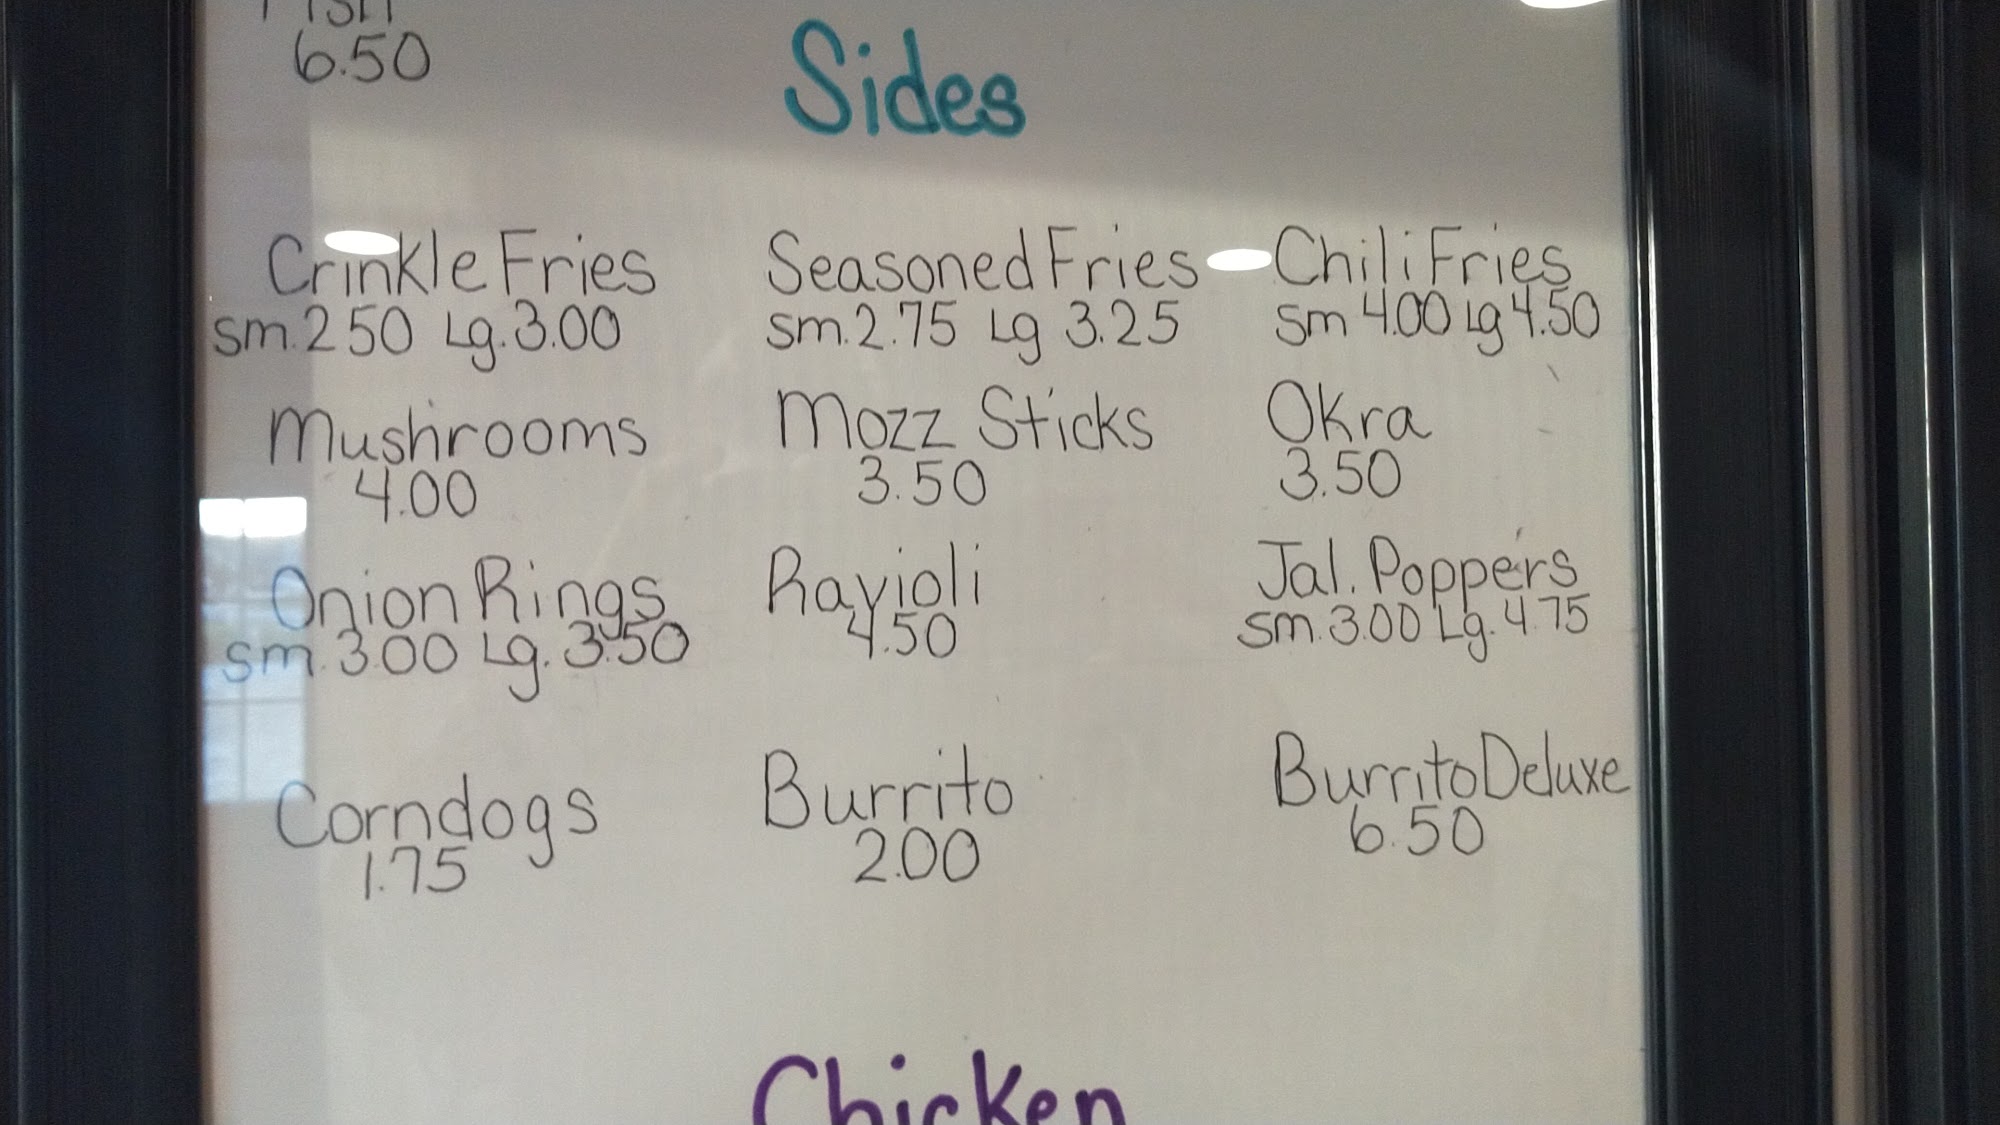 Fish
6.50
Sides
Crinkle Fries
sm. 2 50 Lg. 3.00
Seasoned Fries
sm. 2.75 Lg 3.25
Chili Fries
sm 4.00 Lg 4.50
Mushrooms
4.00
Mozz Sticks
3.50
Okra
3.50
Onion Rings
sm. 3.00 Lg. 3.50
Ravioli
4.50
Jal. Poppers
sm. 3.00 Lg. 4.75
Corndogs
1.75
Burrito
2.00
Burrito Deluxe
6.50
Chicken